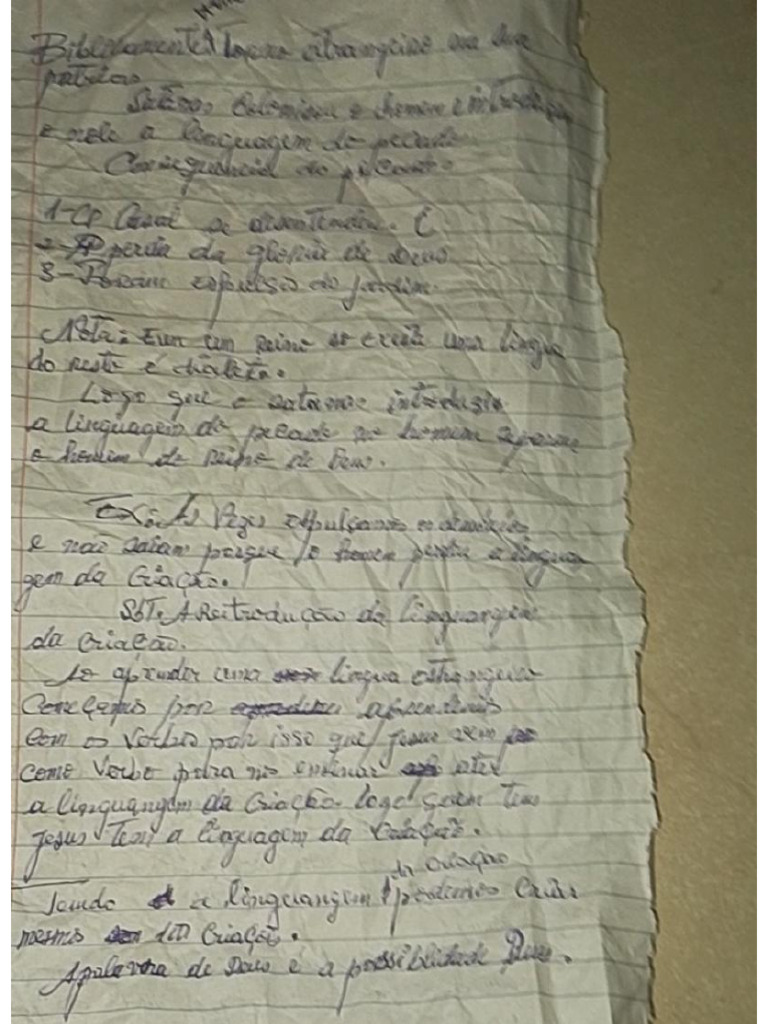 Biblicamente
Satanas colonizou o homem e introduziu
e nele a linguagem do pecado
Consequencia do pecado.
1-Op Casal se desentendeu. E
2- A perda da gloria de Deus
3- Foram expulsos do jardim.
Nota: Em um Reino so existe uma lingua
do resto é dialeto.
Logo que o satanas introduziu
a linguagem do pecado no homem separou
o homem do Reino de Deus.
Ex: As Vezes expulsamos os demónios
e não saiam porque o homem perdeu a lingua
gem da Criação.
SbT. A Reitrodução da linguangem
da criação.
Ao aprender uma lingua estrangeira
Começamos por aprendemos
com os verbos por isso que Jesus vem
como Verbo para nos ensinar ater
a linguangem da Criação logo quem tem
Jesus Tem a linguagem da Criação.
da criação
Tendo a linguangem podemos Criar
mesmo Criação.
A palavra de Deus é a possiblidade Deus.